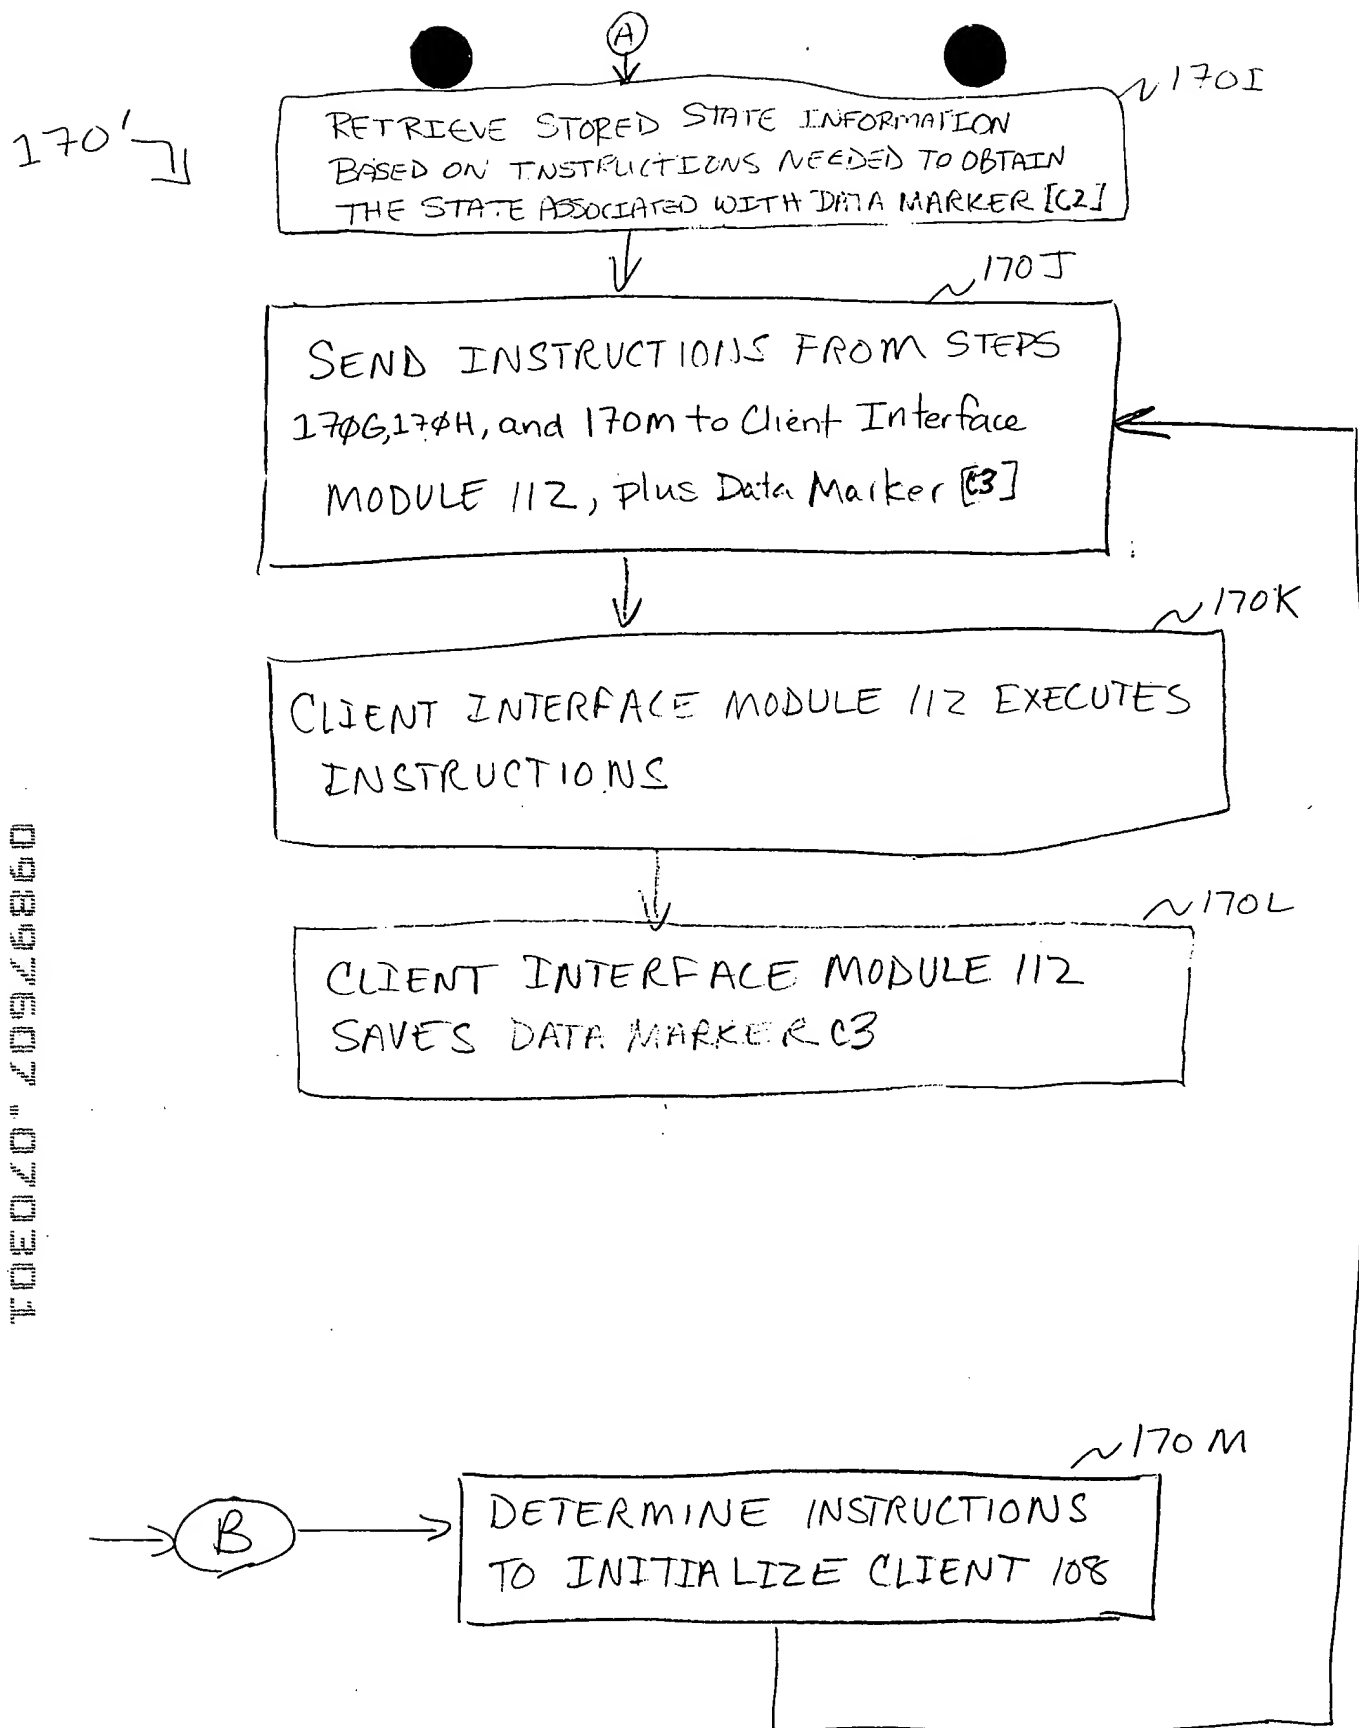 A
170I
170'
RETRIEVE STORED STATE INFORMATION
BASED ON INSTRUCTIONS NEEDED TO OBTAIN
THE STATE ASSOCIATED WITH DATA MARKER [C2]
170J
SEND INSTRUCTIONS FROM STEPS
17∅G, 17∅H, and 170M to Client Interface
MODULE 112, plus Data Marker [C3]
170K
CLIENT INTERFACE MODULE 112 EXECUTES
INSTRUCTIONS
170L
CLIENT INTERFACE MODULE 112
SAVES DATA MARKER C3
170M
B
DETERMINE INSTRUCTIONS
TO INITIALIZE CLIENT 108
09897607.070301